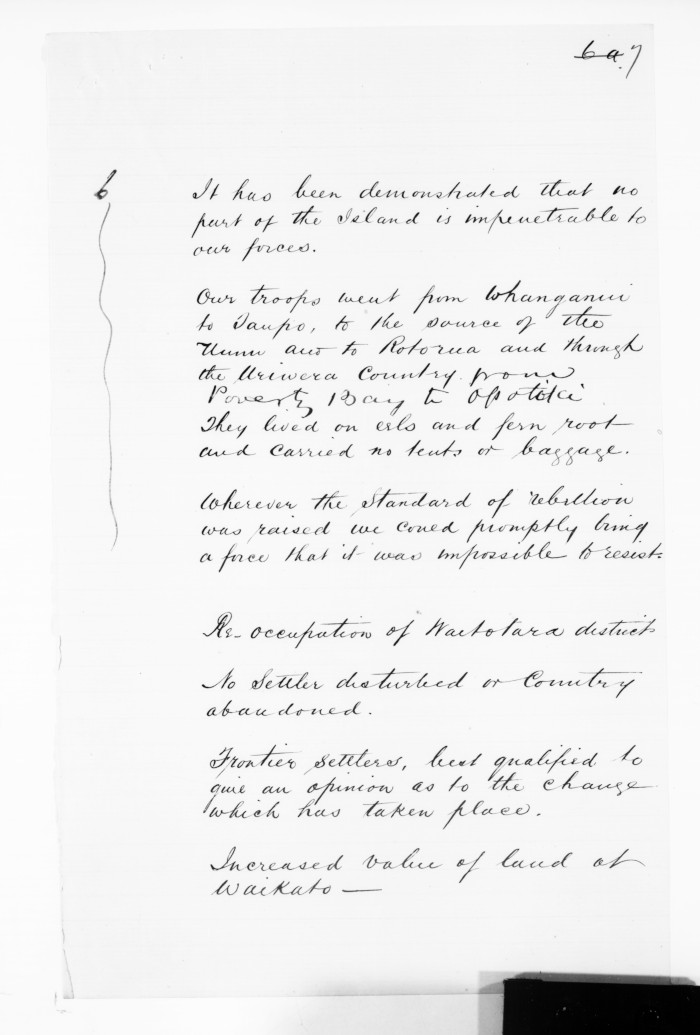 6a.7
6
It has been demonstrated that no
part of the Island is impenetrable to
our forces.
Our troops went from Whanganui
to Taupo, to the source of the
and to Rotorua and through
the Uriwera Country from
Poverty Bay to Opotiki
They lived on eels and fern root
and carried no tents or baggage.
Wherever the Standard of rebellion
was raised we could promptly bring
a force that it was impossible to resist.
Re-occupation of Waitotara district
No Settler disturbed or Country
abandoned.
Frontier settlers, best qualified to
give an opinion as to the change
which has taken place.
Increased value of land at
Waikato —